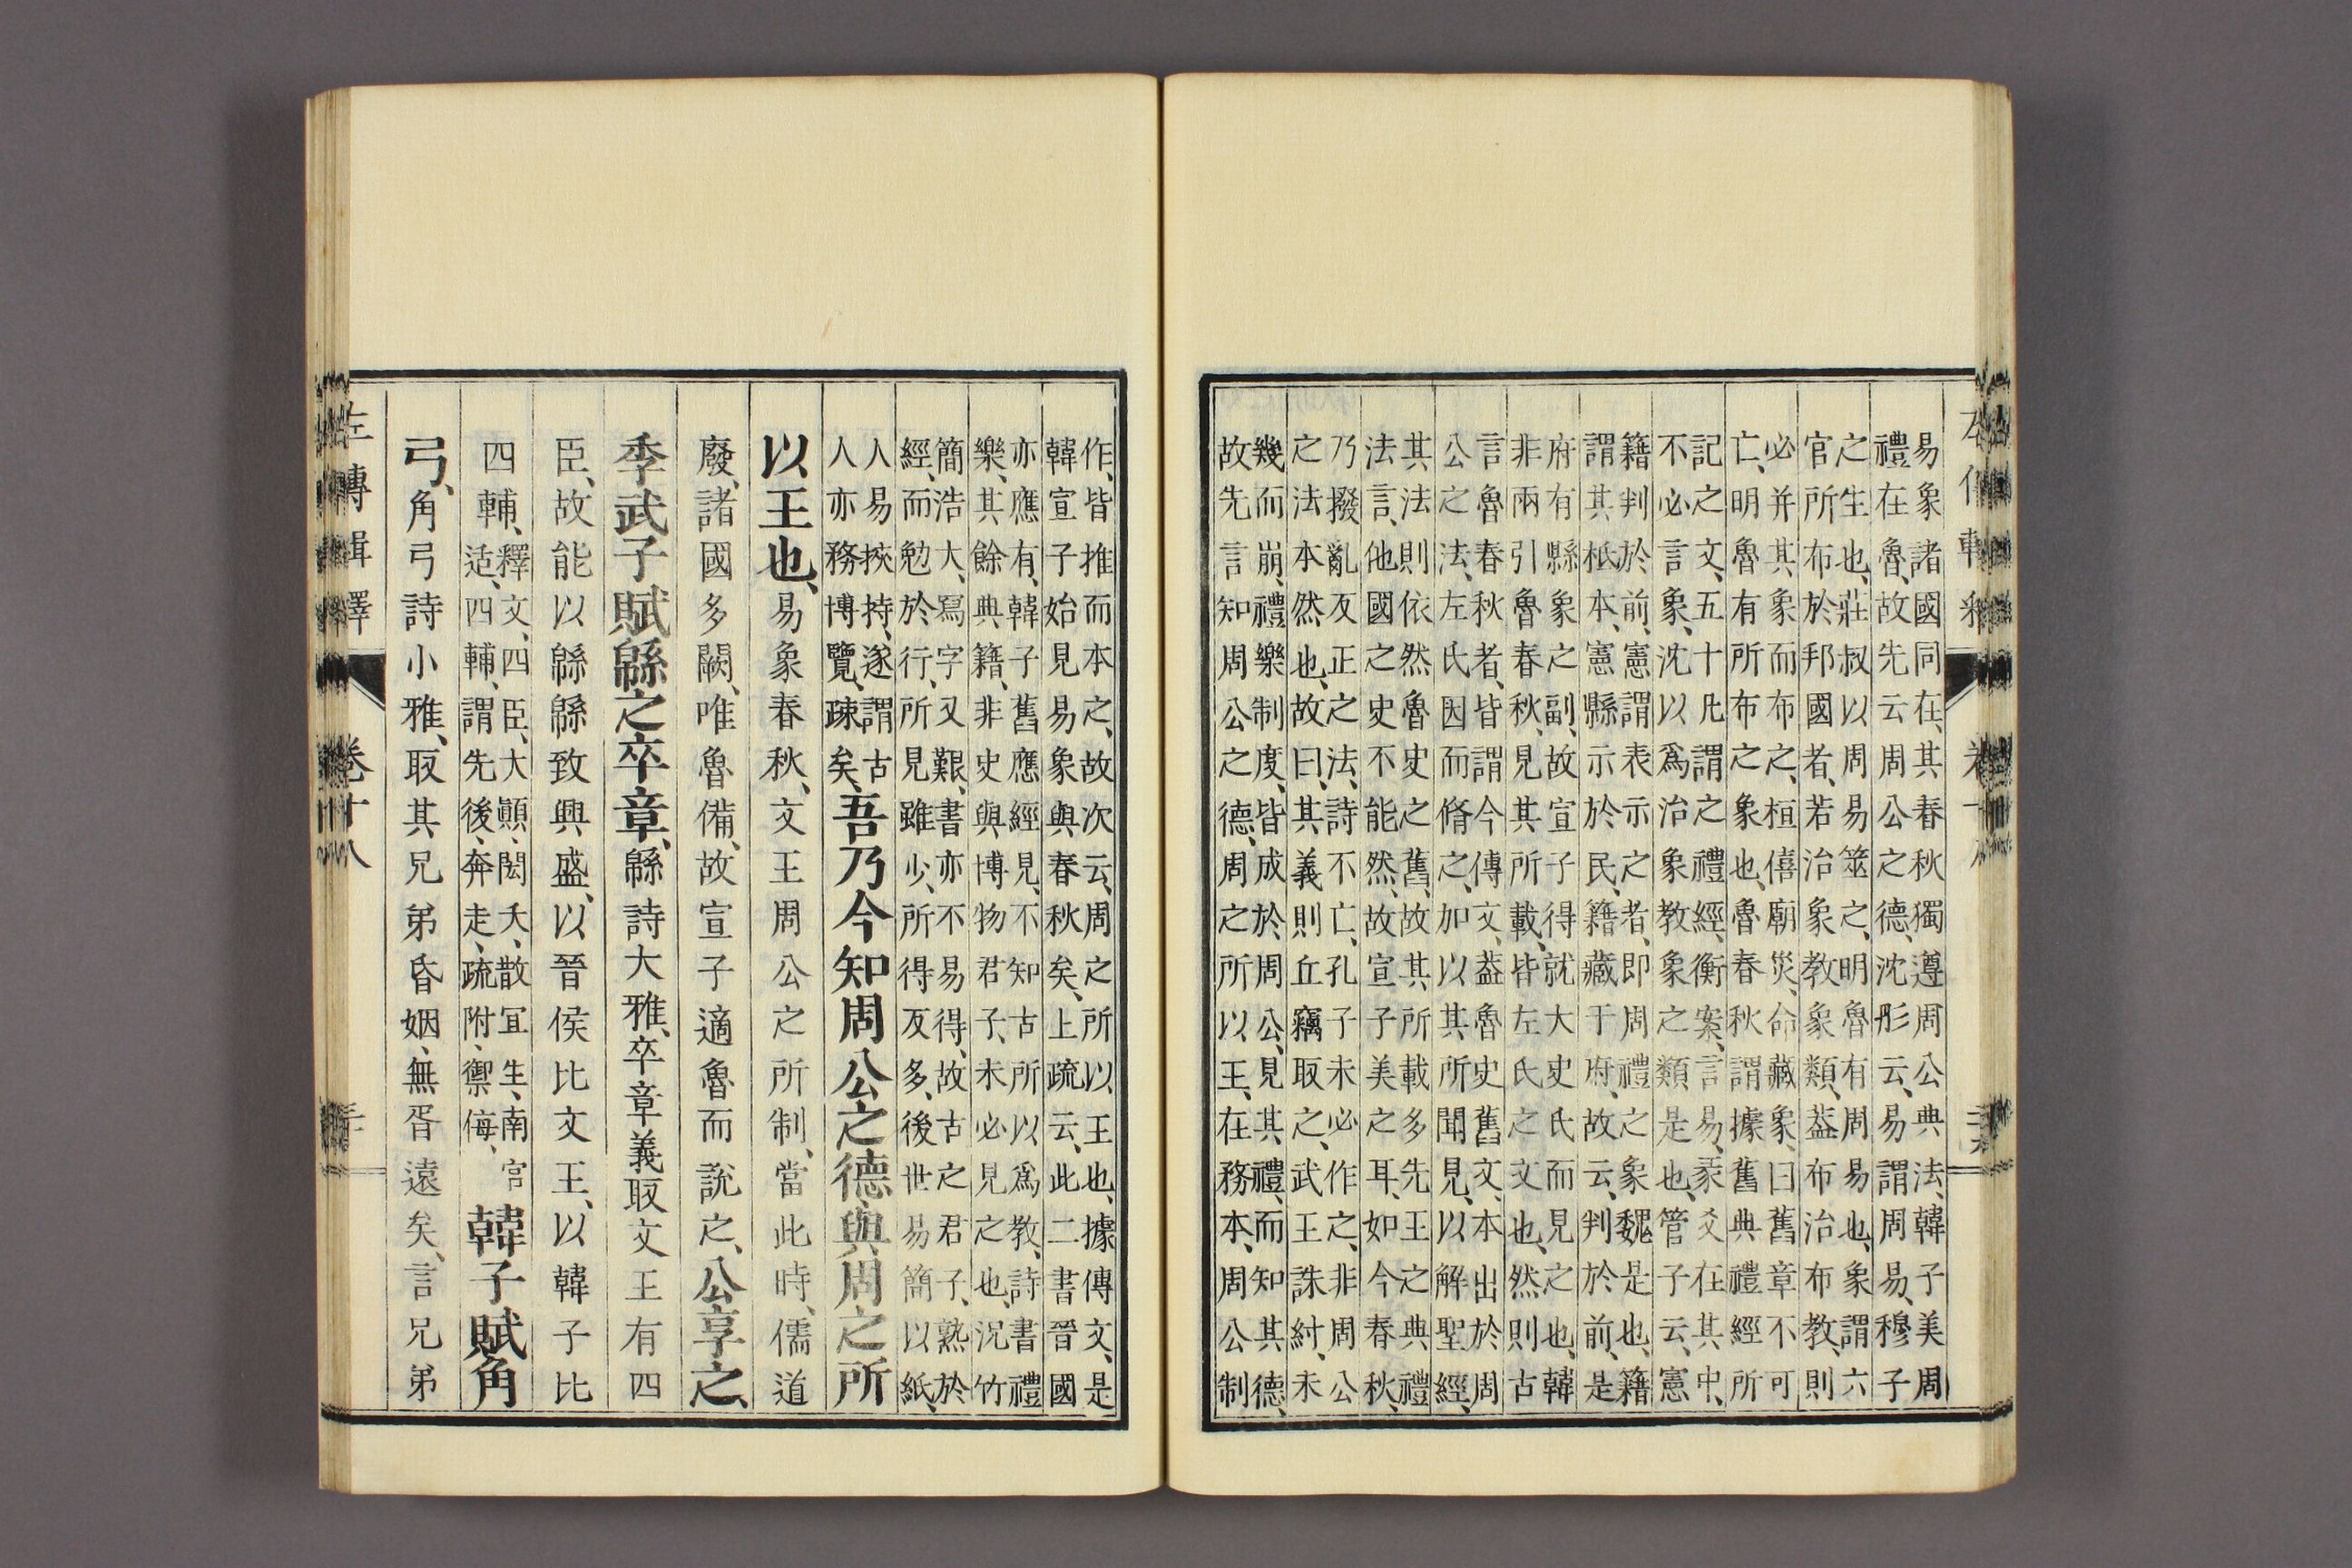 易象諸國同在、其春秋獨遵周公典法、韓子美周
禮在魯、故先云周公之德、沈彤云、易謂周易、穆子
之生也、莊叔以周易筮之、明魯有周易也、象謂六
官所布於邦國者、若治象教象類、葢布治布教、則
必并其象而布之、桓僖廟災、命藏象曰舊章不可
亡、明魯有所布之象也、魯春秋謂據舊典禮經所
記之文、五十凡謂之禮經、衡案、言易、彖爻在其中、
不必言象、沈以爲治象教象之類是也、管子云、憲
籍判於前、憲謂表示之者、即周禮之象魏是也、籍
謂其柢本、憲縣示於民、籍藏于府、故云、判於前、是
府有縣象之副、故宣子得就大史氏而見之也、韓
非兩引魯春秋、見其所載、皆左氏之文也、然則古
言魯春秋者、皆謂今傳文、葢魯史舊文、本出於周
公之法、左氏因而脩之、加以其所聞見、以解聖經、
其法則依然魯史之舊、故其所載多先王之典禮
法言、他國之史不能然、故宣子美之耳、如今春秋、
乃撥亂反正之法、詩不亡、孔子未必作之、非周公
之法本然也、故曰、其義則丘竊取之、武王誅紂、未
幾而崩、禮樂制度、皆成於周公、見其禮、而知其德、
故先言知周公之德、周之所以王、在務本、周公制
作、皆推而本之、故次云、周之所以王也、據傳文、是
韓宣子始見易象與春秋矣、上疏云、此二書晉國
亦應有、韓子舊應經見、不知古所以爲教、詩書禮
樂、其餘典籍、非史與博物君子、未必見之也、況竹
簡浩大、寫字又艱、書亦不易得、故古之君子、熟於
經、而勉於行、所見雖少、所得反多、後世易簡以紙、
人易挾持、遂謂古
人亦務博覽、疎矣、吾乃今知周公之德、與周之所
以王也、易象春秋、文王周公之所制、當此時、儒道
廢、諸國多闕、唯魯備、故宣子適魯而說之、公享之、
季武子賦緜之卒章、緜詩大雅、卒章義取文王有四
臣、故能以緜緜致興盛、以晉侯比文王、以韓子比
四輔、釋文、四臣、大顚、閎夭、散宜生、南宮
适、四輔、謂先後、奔走、疏附、禦侮、韓子賦角
弓、角弓詩小雅、取其兄弟昏姻、無胥遠矣、言兄弟
左傳輯釋 卷十八